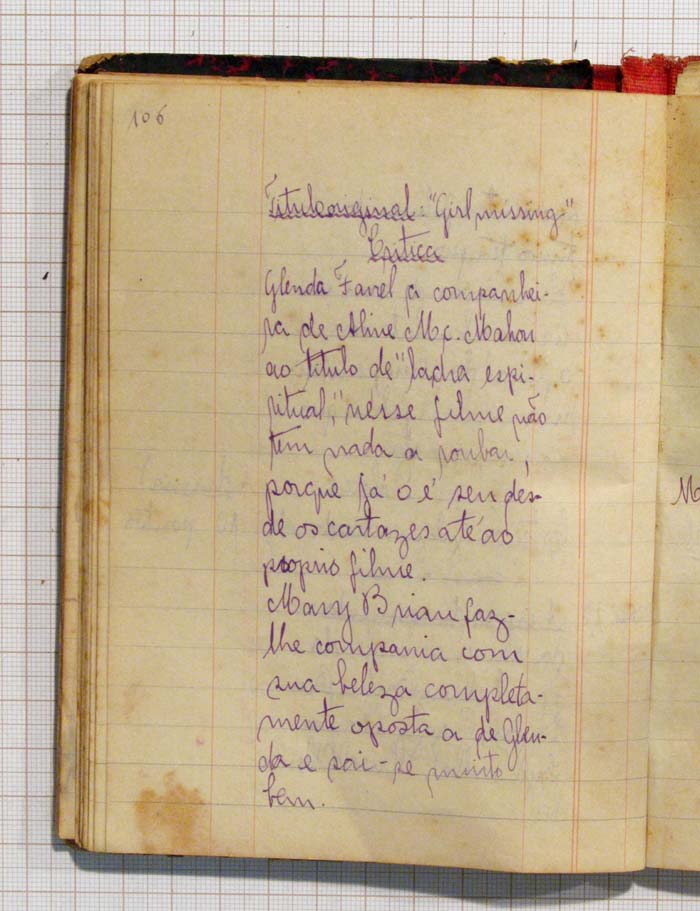 106
Titulo original: "Girl missing"
Critica
Glenda Farrel a companhei-
ra de Aline Mc. Mahon
ao titulo de "lacha espi-
ritual," nesse filme não
tem nada a roubar,
porque já o é seu des-
de os cartazes até ao
proprio filme.
Mary Brian faz-
lhe compania com
sua beleza completa-
mente oposta a de Glen-
da e sai-se muito
bem.
M